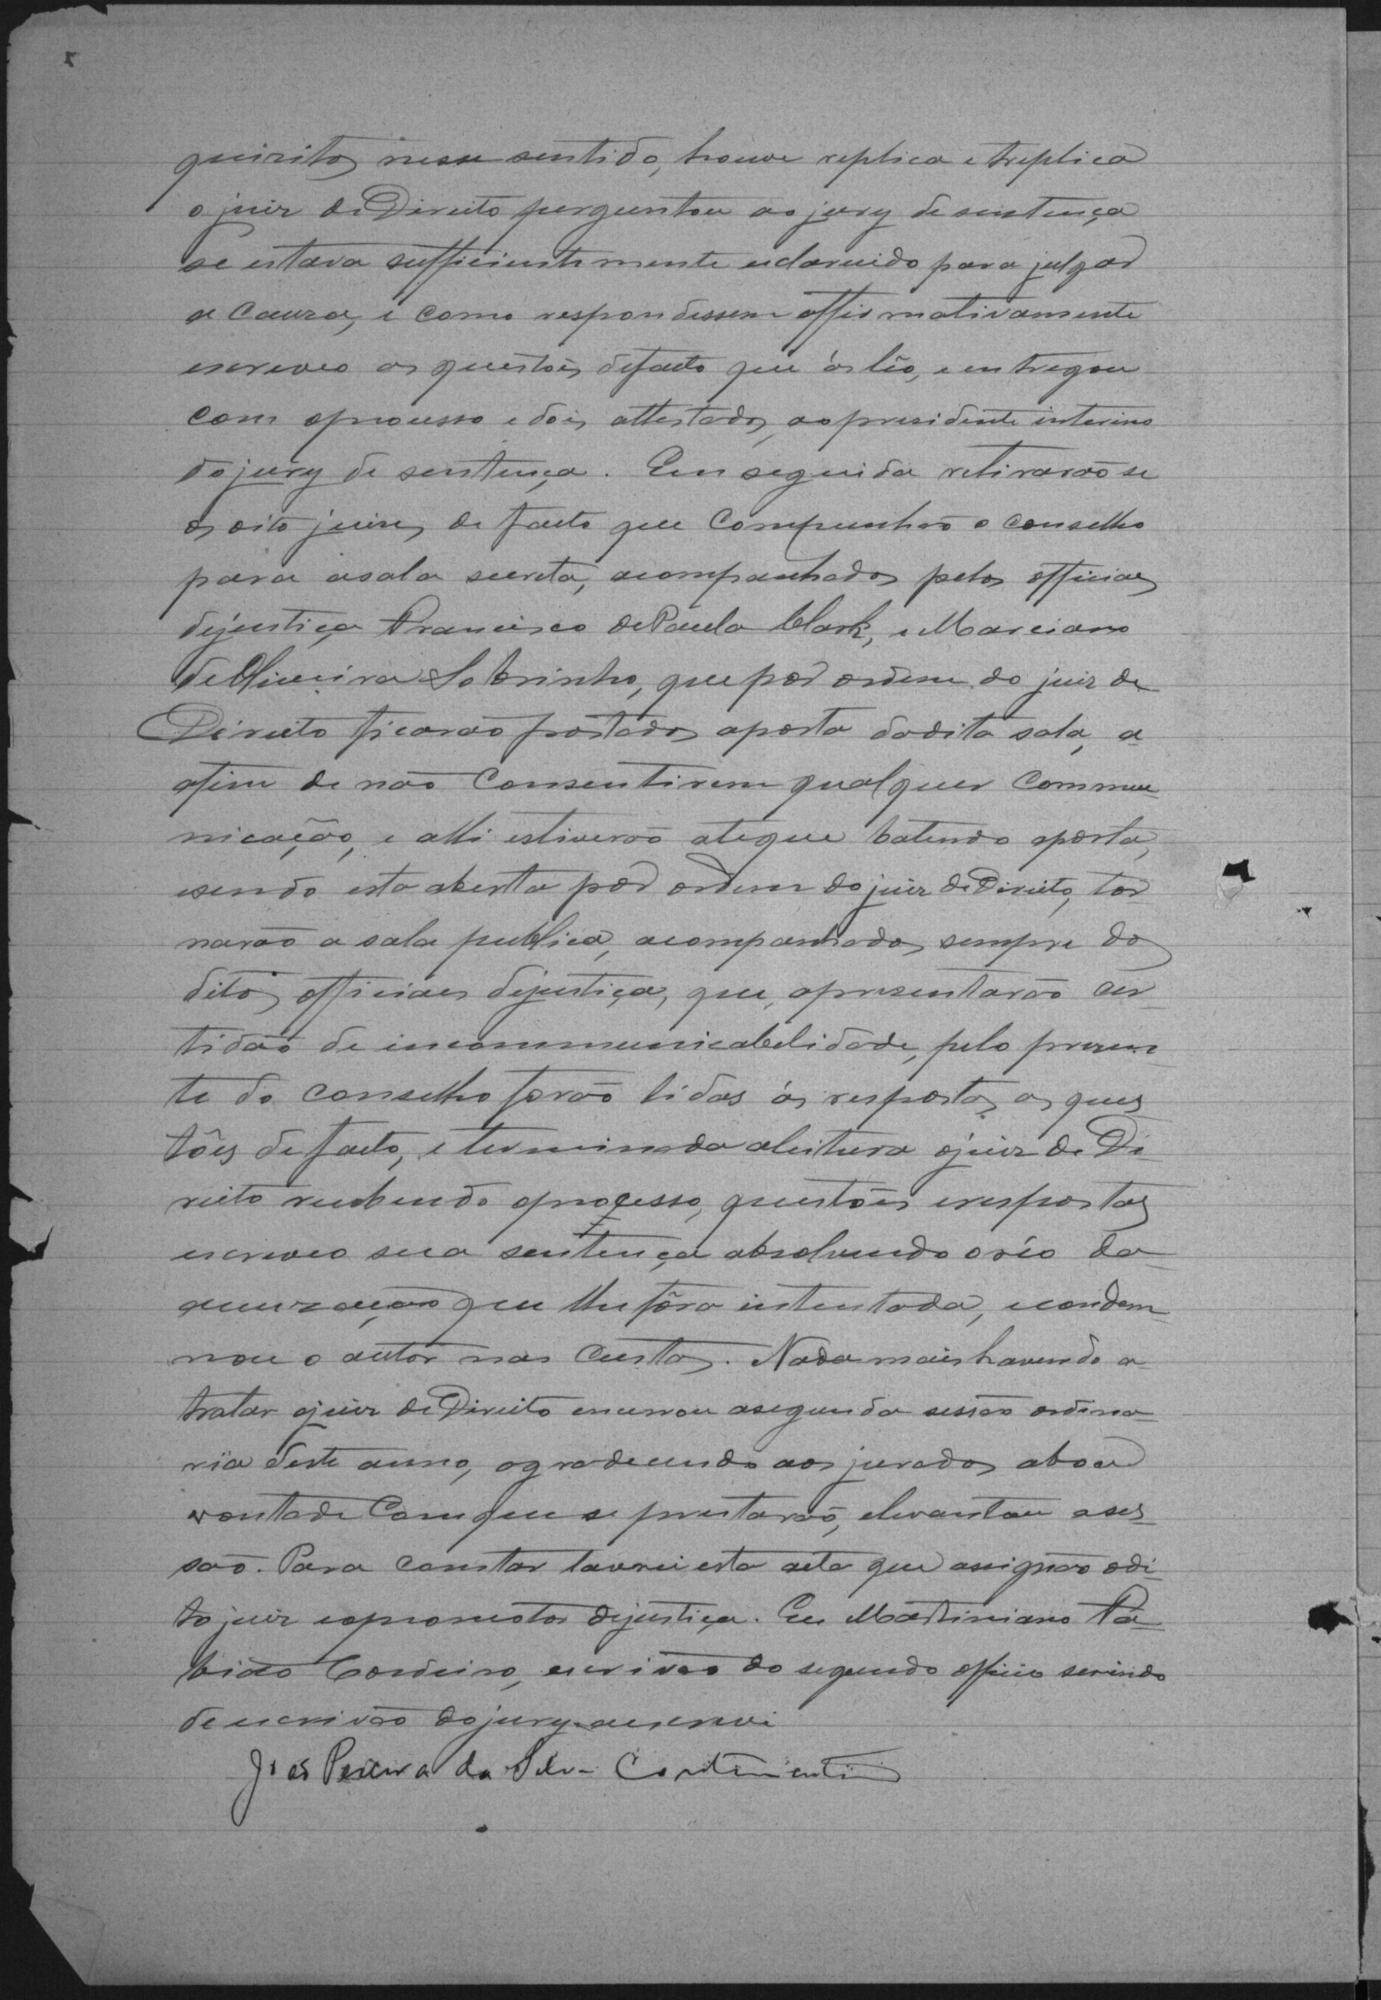 quizitos nesse sentido, houve replica e treplica
o juiz de Direito perguntou ao jury de sentença
se estava sufficientemente esclarecido para julgar
a causa, e como respondessem affirmativamente
escreveo as questões de facto que ás lêo, e entregou
com o processo e dois attestados, ao presidente interino
do jury de sentença. Em seguida retirarão se
os oito juizes de facto que compunhão o conselho
para a sala secreta, acompanhados pelos officiaes
de justiça Francisco de Paula Clark, e Marciano
de Oliveira Sobrinho, que por ordem do juiz de
Direito ficarão postados a porta da dita sala, a
afim de não consentirem qualquer commu-
nicação, e alli estiverão ate que batendo a porta,
e sendo esta aberta por ordem do juiz de Direito, tor
narão a sala publica, acompanhados sempre dos
ditos officiaes de justiça, que, apresentarão cer-
tidão de incommunicabilidade, pelo presiden
te do conselho forão lidas ás respostas as ques
tões de facto, e terminada a leitura o juiz de Di-
reito recebendo o processo, questões e respostas
escreveo sua sentença absolvendo o réo da
accuzação que lhe fôra intentada, e condem-
nou o autor nas custas. Nada mais havendo a
tratar o juiz de Direito encerrou a segunda sessão ordina-
ria deste anno, agradecendo aos jurados a boa
vontade com que se prestarão, e levantou a ses-
são. Para constar lavrei esta acta que assignão o di-
to juiz e o promotor de justiça. Eu Martiniano Fa-
biao Cordeiro, escrivão do segundo officio servindo
de escrivão do jury a escrevi
João Pereira da Silva Continentino